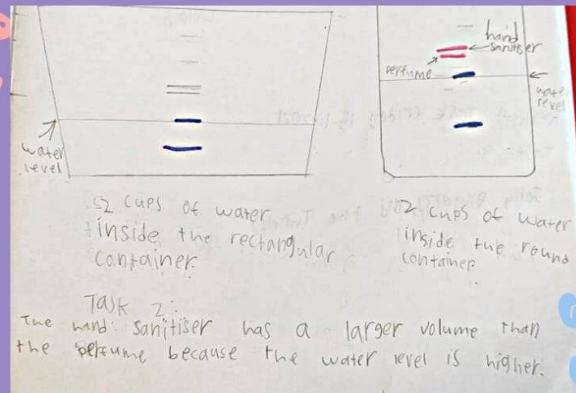 hand
sanitiser
perfume
water
level
water
level
2 cups of water
inside the rectangular
container.
2 cups of water
inside the round
container
Task 2:
The hand sanitiser has a larger volume than
the perfume because the water level is higher.